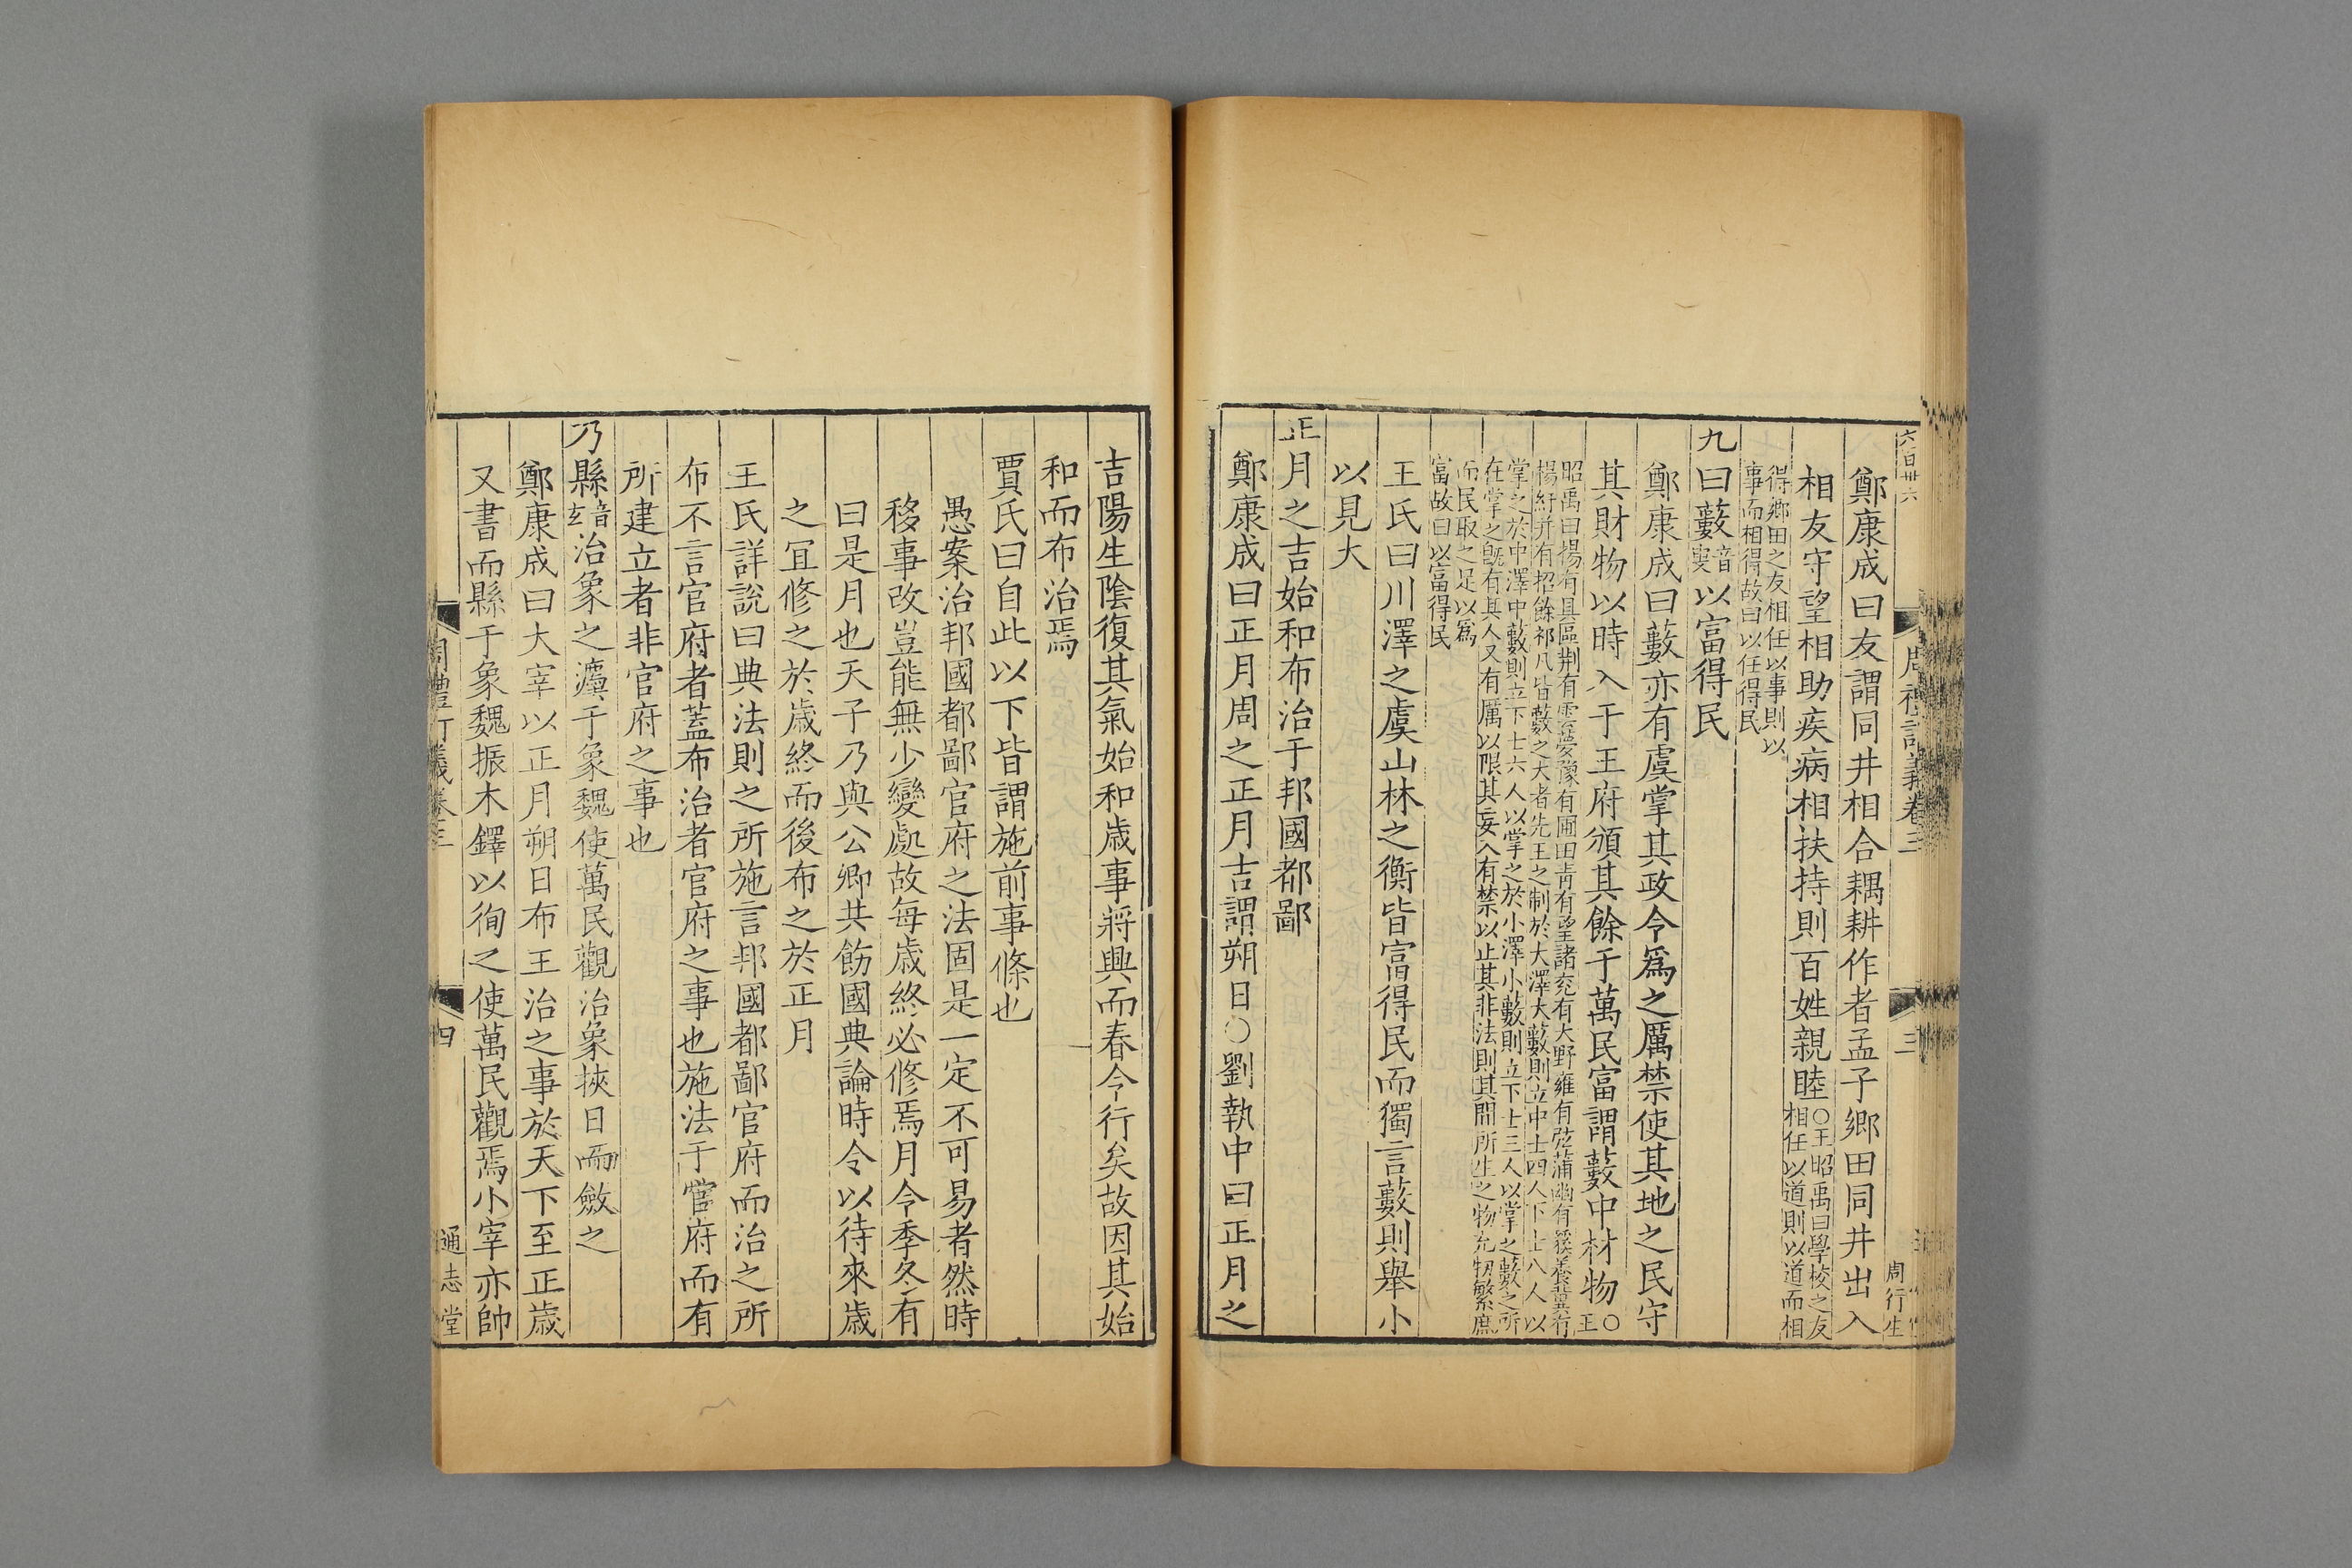 六百卅六
周禮訂義卷三
三
周行生
鄭康成曰友謂同井相合耦耕作者孟子鄉田同井出入
相友守望相助疾病相扶持則百姓親睦○王昭禹曰學校之友
相任以道則以道而相
得鄉田之友相任以事則以
事而相得故曰以任得民
九曰藪音
叟以富得民
鄭康成曰藪亦有虞掌其政令為之厲禁使其地之民守
其財物以時入于王府頒其餘于萬民富謂藪中材物○
王
昭禹曰揚有具區荆有雲夢豫有圃田青有望諸兖有大野雍有弦蒲幽有貕養冀有
楊紆并有昭餘祁凡皆藪之大者先王之制於大澤大藪則立中士四人下士八人以
掌之於中澤中藪則立下士六人以掌之於小澤小藪則立下士三人以掌之藪之所
在掌之旣有其人又有厲以限其妄入有禁以止其非法則其間所生之物充牣繁庶
而民取之足以為
富故曰以富得民
王氏曰川澤之虞山林之衡皆富得民而獨言藪則舉小
以見大
正月之吉始和布治于邦國都鄙
鄭康成曰正月周之正月吉謂朔日○劉執中曰正月之
吉陽生陰復其氣始和歲事將興而春令行矣故因其始
和而布治焉
賈氏曰自此以下皆謂施前事條也
愚案治邦國都鄙官府之法固是一定不可易者然時
移事改豈能無少變處故每歲終必修焉月令季冬有
曰是月也天子乃與公卿共飭國典論時令以待來歲
之宜修之於歲終而後布之於正月
王氏詳說曰典法則之所施言邦國都鄙官府而治之所
布不言官府者蓋布治者官府之事也施法于官府而有
所建立者非官府之事也
乃縣音
玄治象之灋于象魏使萬民觀治象挾日而斂之
鄭康成曰大宰以正月朔日布王治之事於天下至正歲
又書而縣于象魏振木鐸以徇之使萬民觀焉小宰亦帥
周禮訂義卷三
四
通志堂